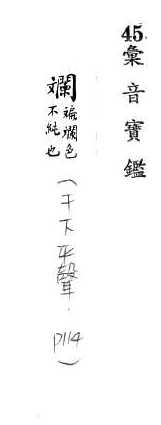 45.彙音寶鑑
斕
斒斕色
不純也
(干下平聲. P114)